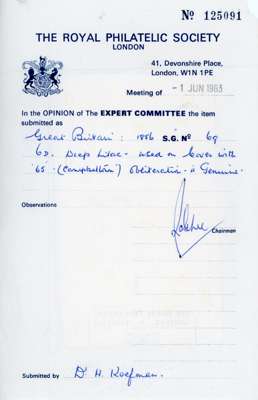 Nº 125091
THE ROYAL PHILATELIC SOCIETY
LONDON
41, Devonshire Place,
London, W1N 1PE
Meeting of -1 JUN 1983
In the OPINION of The EXPERT COMMITTEE the item
submitted as
Great Britain: 1856 S.G. Nº 69
6d. Deep Lilac - used on cover with
'65' (Campbeltown) obliteration - is Genuine.
Observations
Chairman
Submitted by Dr H. Koefman.